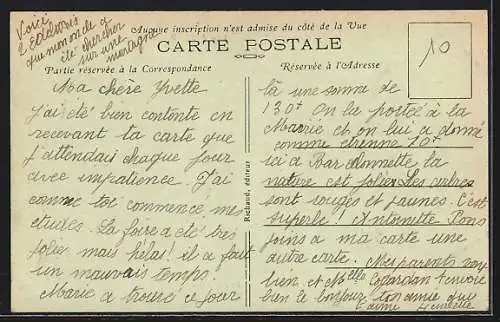 Voici
l'Edelweis
que mon oncle a
été chercher
sur une
montagne
Aucune inscription n'est admise du côté de la Vue
CARTE POSTALE
Partie réservée à la Correspondance
Réservée à l'Adresse
10
Ma chère Yvette
J'ai été bien contente en
recevant ta carte que
j'attendais chaque jour
avec impatience. J'ai
comme toi commencé mes
études. La foire a été très
jolie mais hélas! il a fait
un mauvais temps.
Marie a trouvé ce jour
Richaud, éditeur
là une somme de
130f On la portée à la
Mairie et on lui a donné
comme étrenne 10f
ici a Barcelonnette la
nature est jolie. Les arbres
sont rouges et jaunes. C'est
superbe! Antoinette Pons
joins a ma carte une
autre carte. Mes parents vont
bien et Melle t'envoie
bien le bonjour ton amie que
t'aime